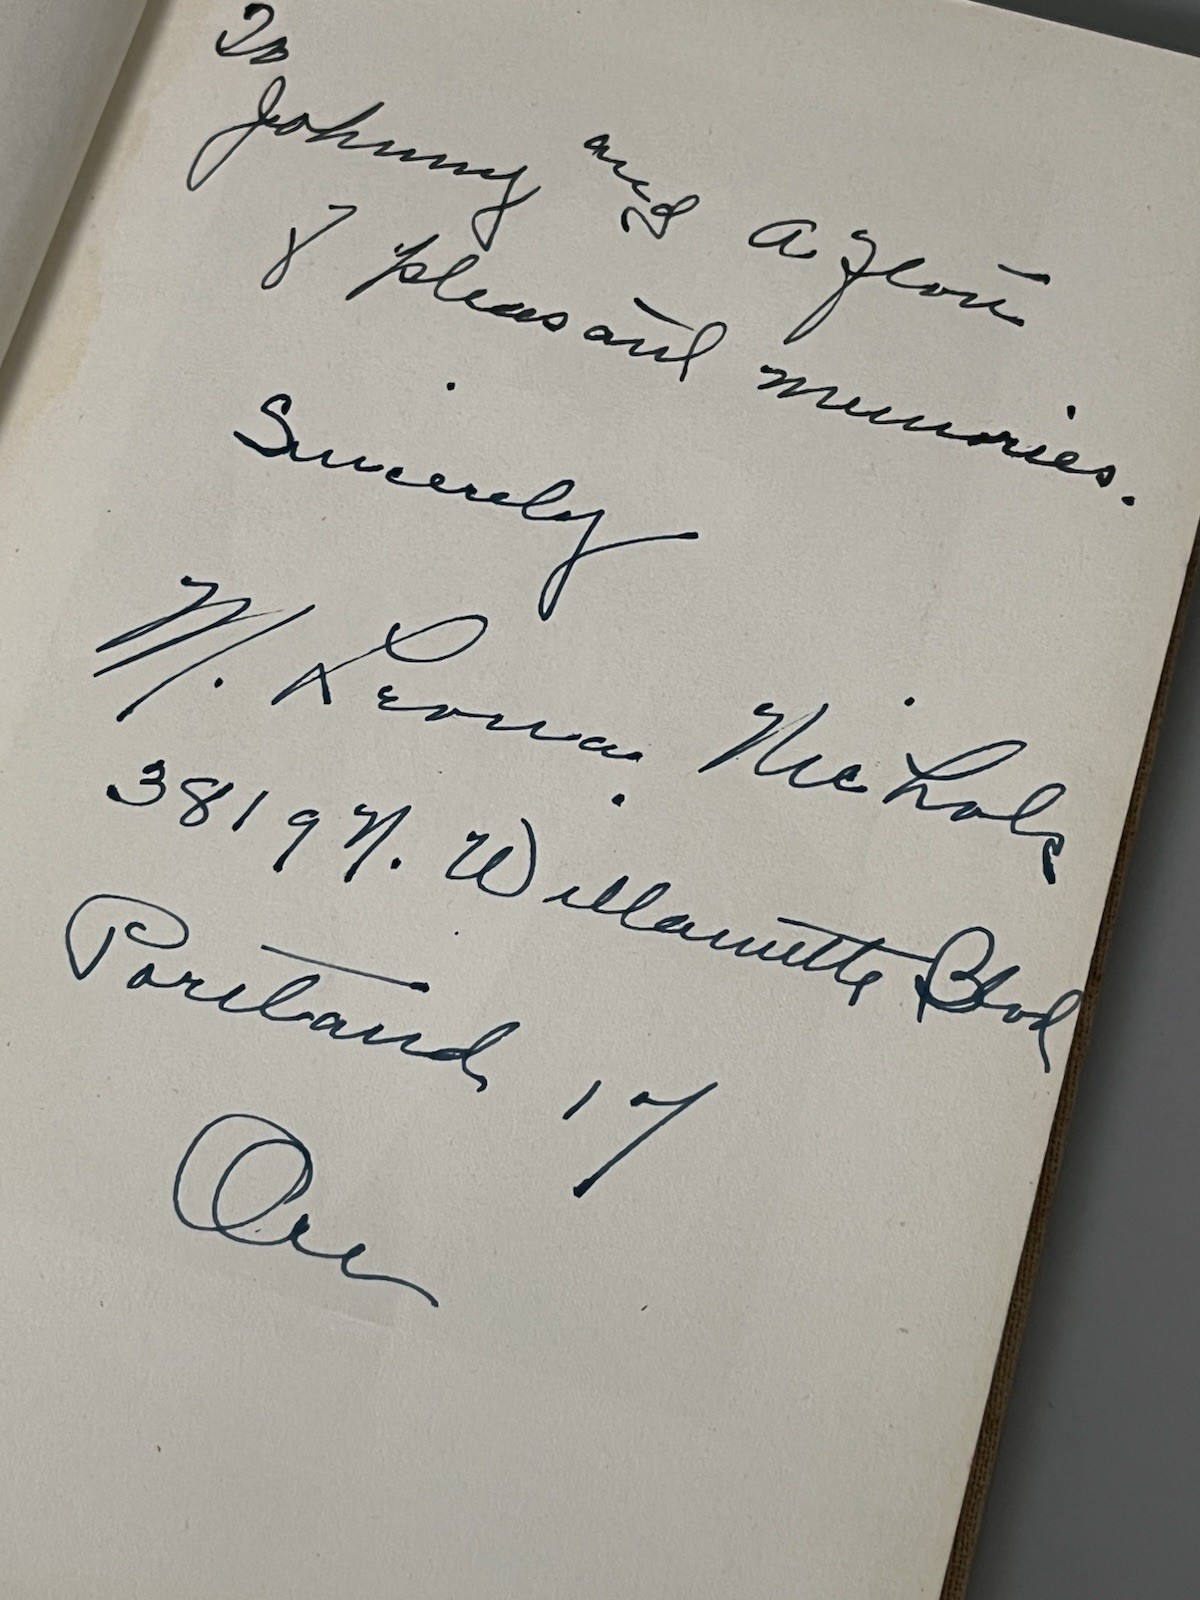 To
Johnny and a
pleasant memories.
Sincerely
M. Leona Nichols
3819 N. Willamette Blvd
Portland 17
Ore